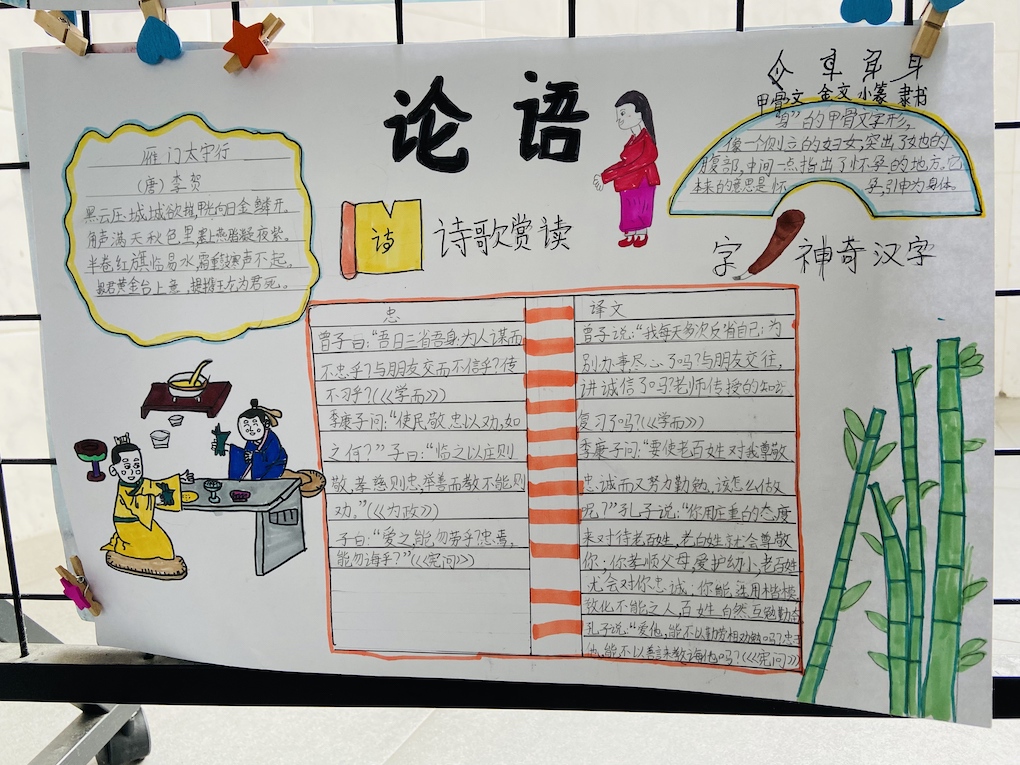 论语
甲骨文 金文 小篆 隶书
"身"的甲骨文字形,
像一个侧立的妇女,突出了她的
腹部,中间一点指出了怀孕的地方。它
本来的意思是怀孕,引申为身体。
雁门太守行
(唐)李贺
黑云压城城欲摧,甲光向日金鳞开。
角声满天秋色里,塞上燕脂凝夜紫。
半卷红旗临易水,霜重鼓寒声不起。
报君黄金台上意,提携玉龙为君死。
诗
诗歌赏读
字
神奇汉字
忠
曾子曰:"吾日三省吾身:为人谋而
不忠乎?与朋友交而不信乎?传
不习乎?(《学而》)
季康子问:"使民敬忠以劝,如
之何?"子曰:"临之以庄则
敬,孝慈则忠,举善而教不能,则
劝。"(《为政》)
子曰:"爱之,能勿劳乎?忠焉,
能勿诲乎?"(《宪问》)
译文
曾子说:"我每天多次反省自己:为
别办事尽心了吗?与朋友交往,
讲诚信了吗?老师传授的知识,
复习了吗?(《学而》)
季康子问:"要使老百姓对我尊敬
忠诚而又努力勤勉,该怎么做
呢?"孔子说:"你用庄重的态度
来对待老百姓,老百姓就会尊敬
你;你孝顺父母,爱护幼小,老百姓
尤会对你忠诚;你能选用楷模
教化不能之人,百姓自然互勉勤奋
孔子说:"爱他,能不以勤劳相劝勉吗?忠于
他,能不以善言来教诲他吗?(《宪问》)